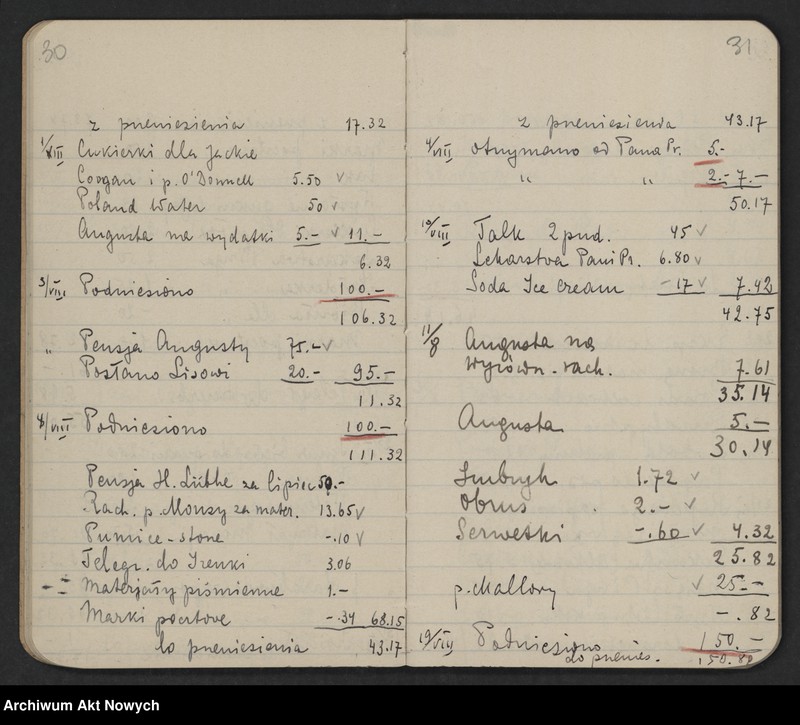 30
z przeniesienia 17.32
1/VIII Cukierki dla Jackie
Coogan i p. O'Donnell 5.50 v
Poland Water 50 v
Augusta na wydatki 5.- v 11.-
6.32
3/VIII Podniesiono 100.-
106.32
" Pensja Augusty 75.- v
Posłano Lisowi 20.- 95.-
11.32
4/VIII Podniesiono 100.-
111.32
Pensja H. Lübke za lipiec 50.-
Rach. p. Mousy za mater. 13.65 v
Pumice-stone -.10 v
Telegr. do Irenki 3.06
Materjały piśmienne 1.-
Marki pocztowe -.34 68.15
Do przeniesienia 43.17
31
z przeniesienia 43.17
4/VIII Otrzymano od Pana Pr. 5.-
" " 2.- 7.-
50.17
10/VIII Talk 2 pud. 45 v
Lekarstwa Pani Pr. 6.80 v
Soda Ice Cream -17 v 7.42
42.75
11/8 Augusta na
wyrówn. rach. 7.61
35.14
Augusta 5.-
30.14
Imbryk 1.72 v
Obrus 2.- v
Serwetki -.60 v 4.32
25.82
p. Mallory v 25.-
-.82
19/VIII Podniesiono 150.-
do przenies. 150.82
Archiwum Akt Nowych